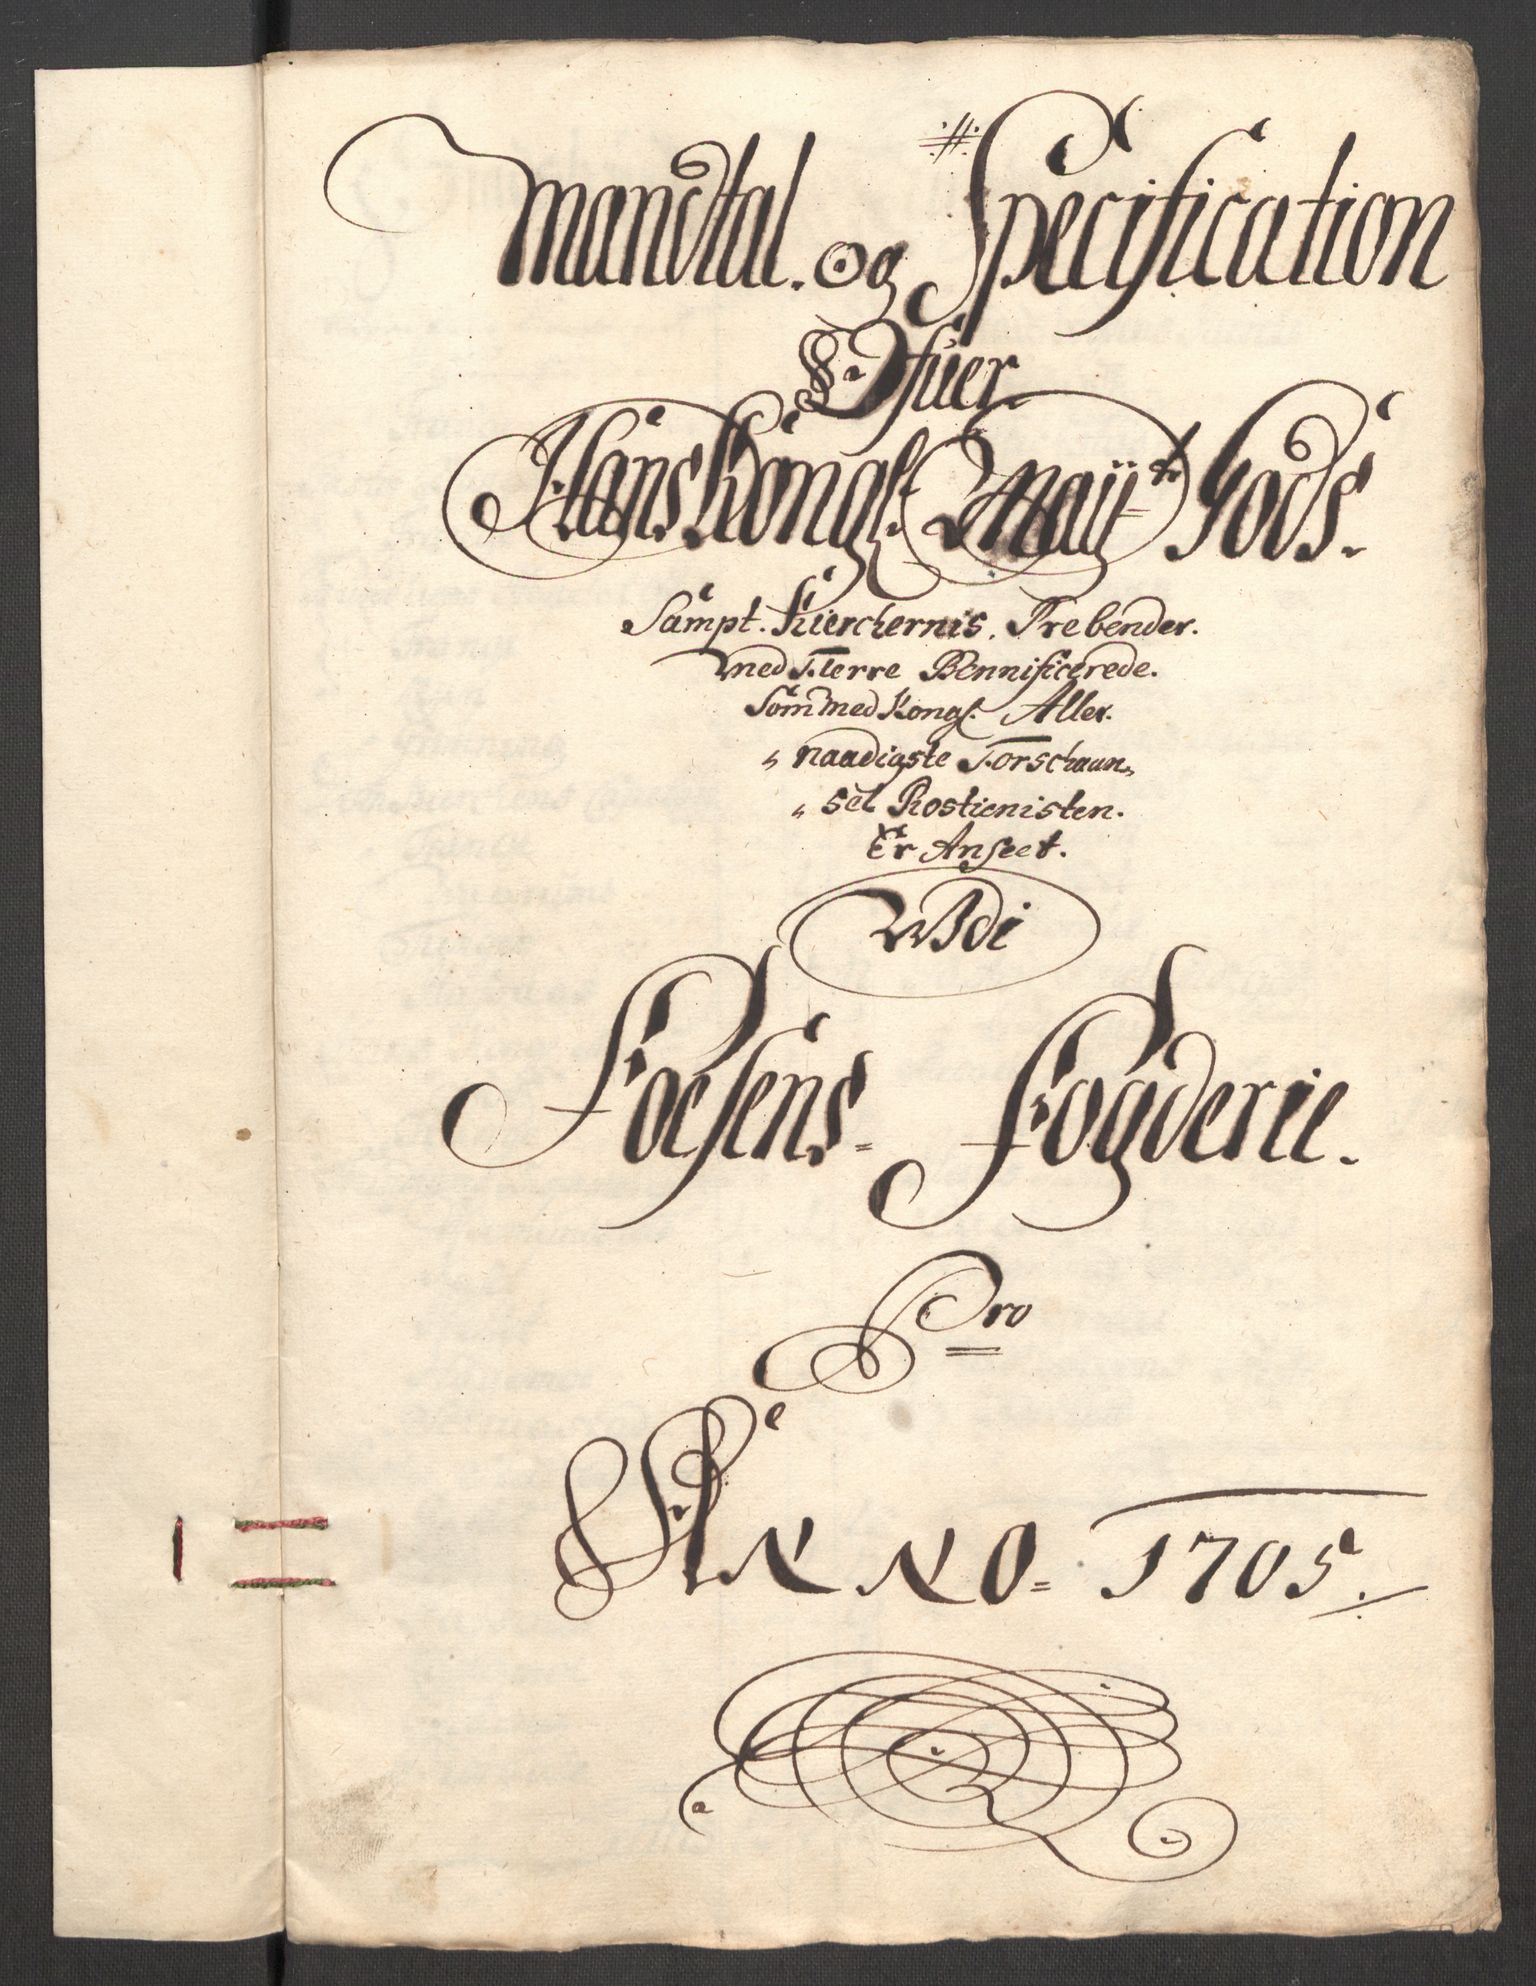 Mandtal. og Specification
Ofuer
Hans Kongl: Maÿtz Gods.
Sampt. Kierchernis. Prebender.
med Flerre Bennificerede.
Som med Kongl. Aller.
naadigste Forschaun,,
sel Rostienisten.
Er Anseet.
Udi
Foesens Fogderie.
Pro
Anno 1705.